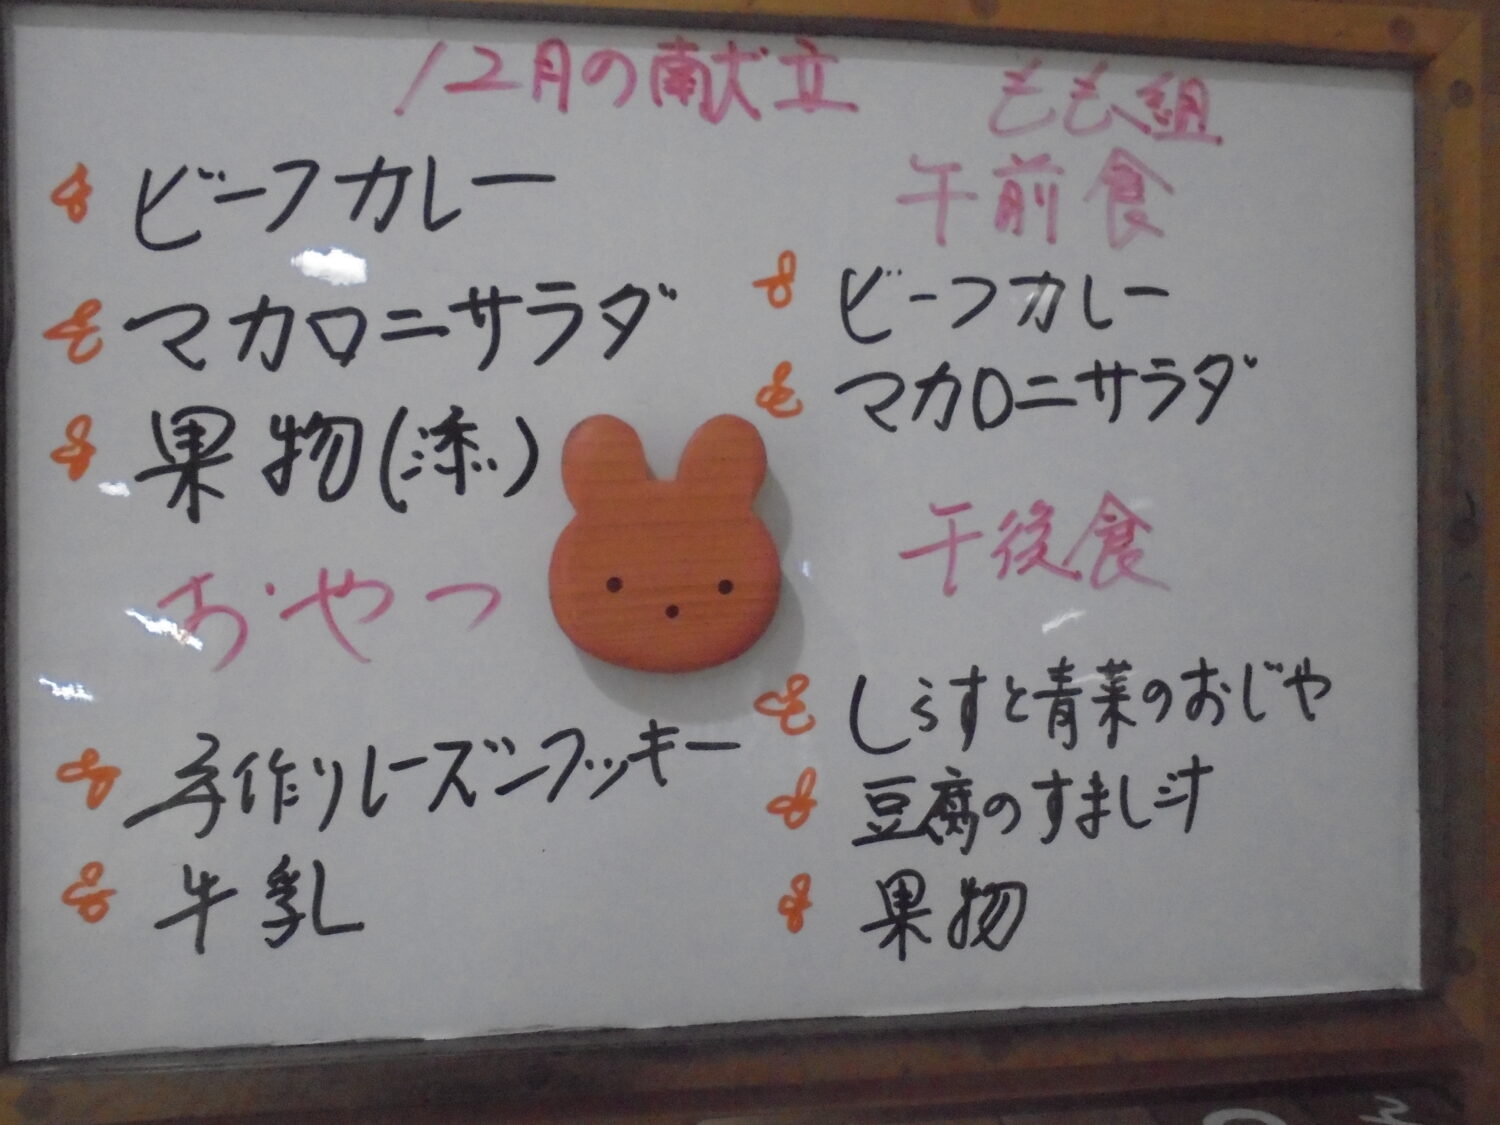 12月の献立
ビーフカレー
マカロニサラダ
果物(添)
おやつ
手作りレーズンクッキー
牛乳
もも組
午前食
ビーフカレー
マカロニサラダ
午後食
しらすと青菜のおじや
豆腐のすまし汁
果物